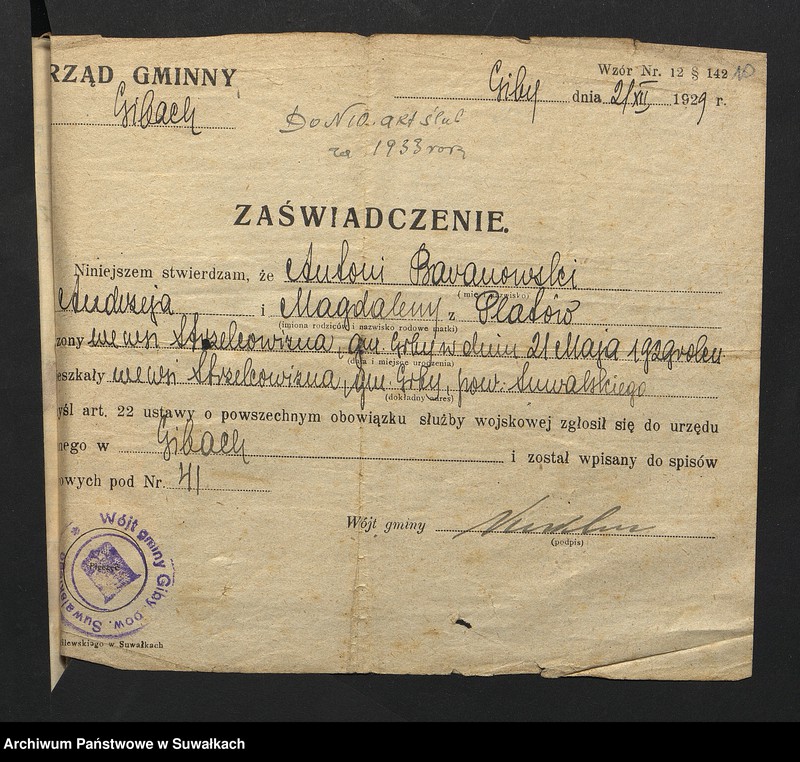 RZĄD GMINNY
Gibach
Wzór Nr. 12 § 142 10
Giby dnia 2/XII 1929 r.
Do N10 akt ślub
za 1933 rok
ZAŚWIADCZENIE.
Niniejszem stwierdzam, że Antoni Baranowski
(imię i nazwisko)
Andrzeja i Magdaleny z Platów
(imiona rodziców i nazwisko rodowe matki)
zony we wsi Strzelcowizna, gm. Giby w dniu 21 Maja 1929 roku
(data i miejsce urodzenia)
eszkały we wsi Strzelcowizna, gm. Giby, pow. Suwalskiego
(dokładny adres)
yśl art. 22 ustawy o powszechnym obowiązku służby wojskowej zgłosił się do urzędu
nego w Gibach i został wpisany do spisów
owych pod Nr. 41
Wójt gminy
(podpis)
* Wójt gminy Giby, pow. Suwalski
ilewskiego w Suwałkach
Archiwum Państwowe w Suwałkach